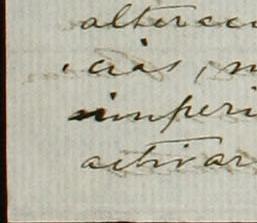 altercci
cias, n
imperi
activar